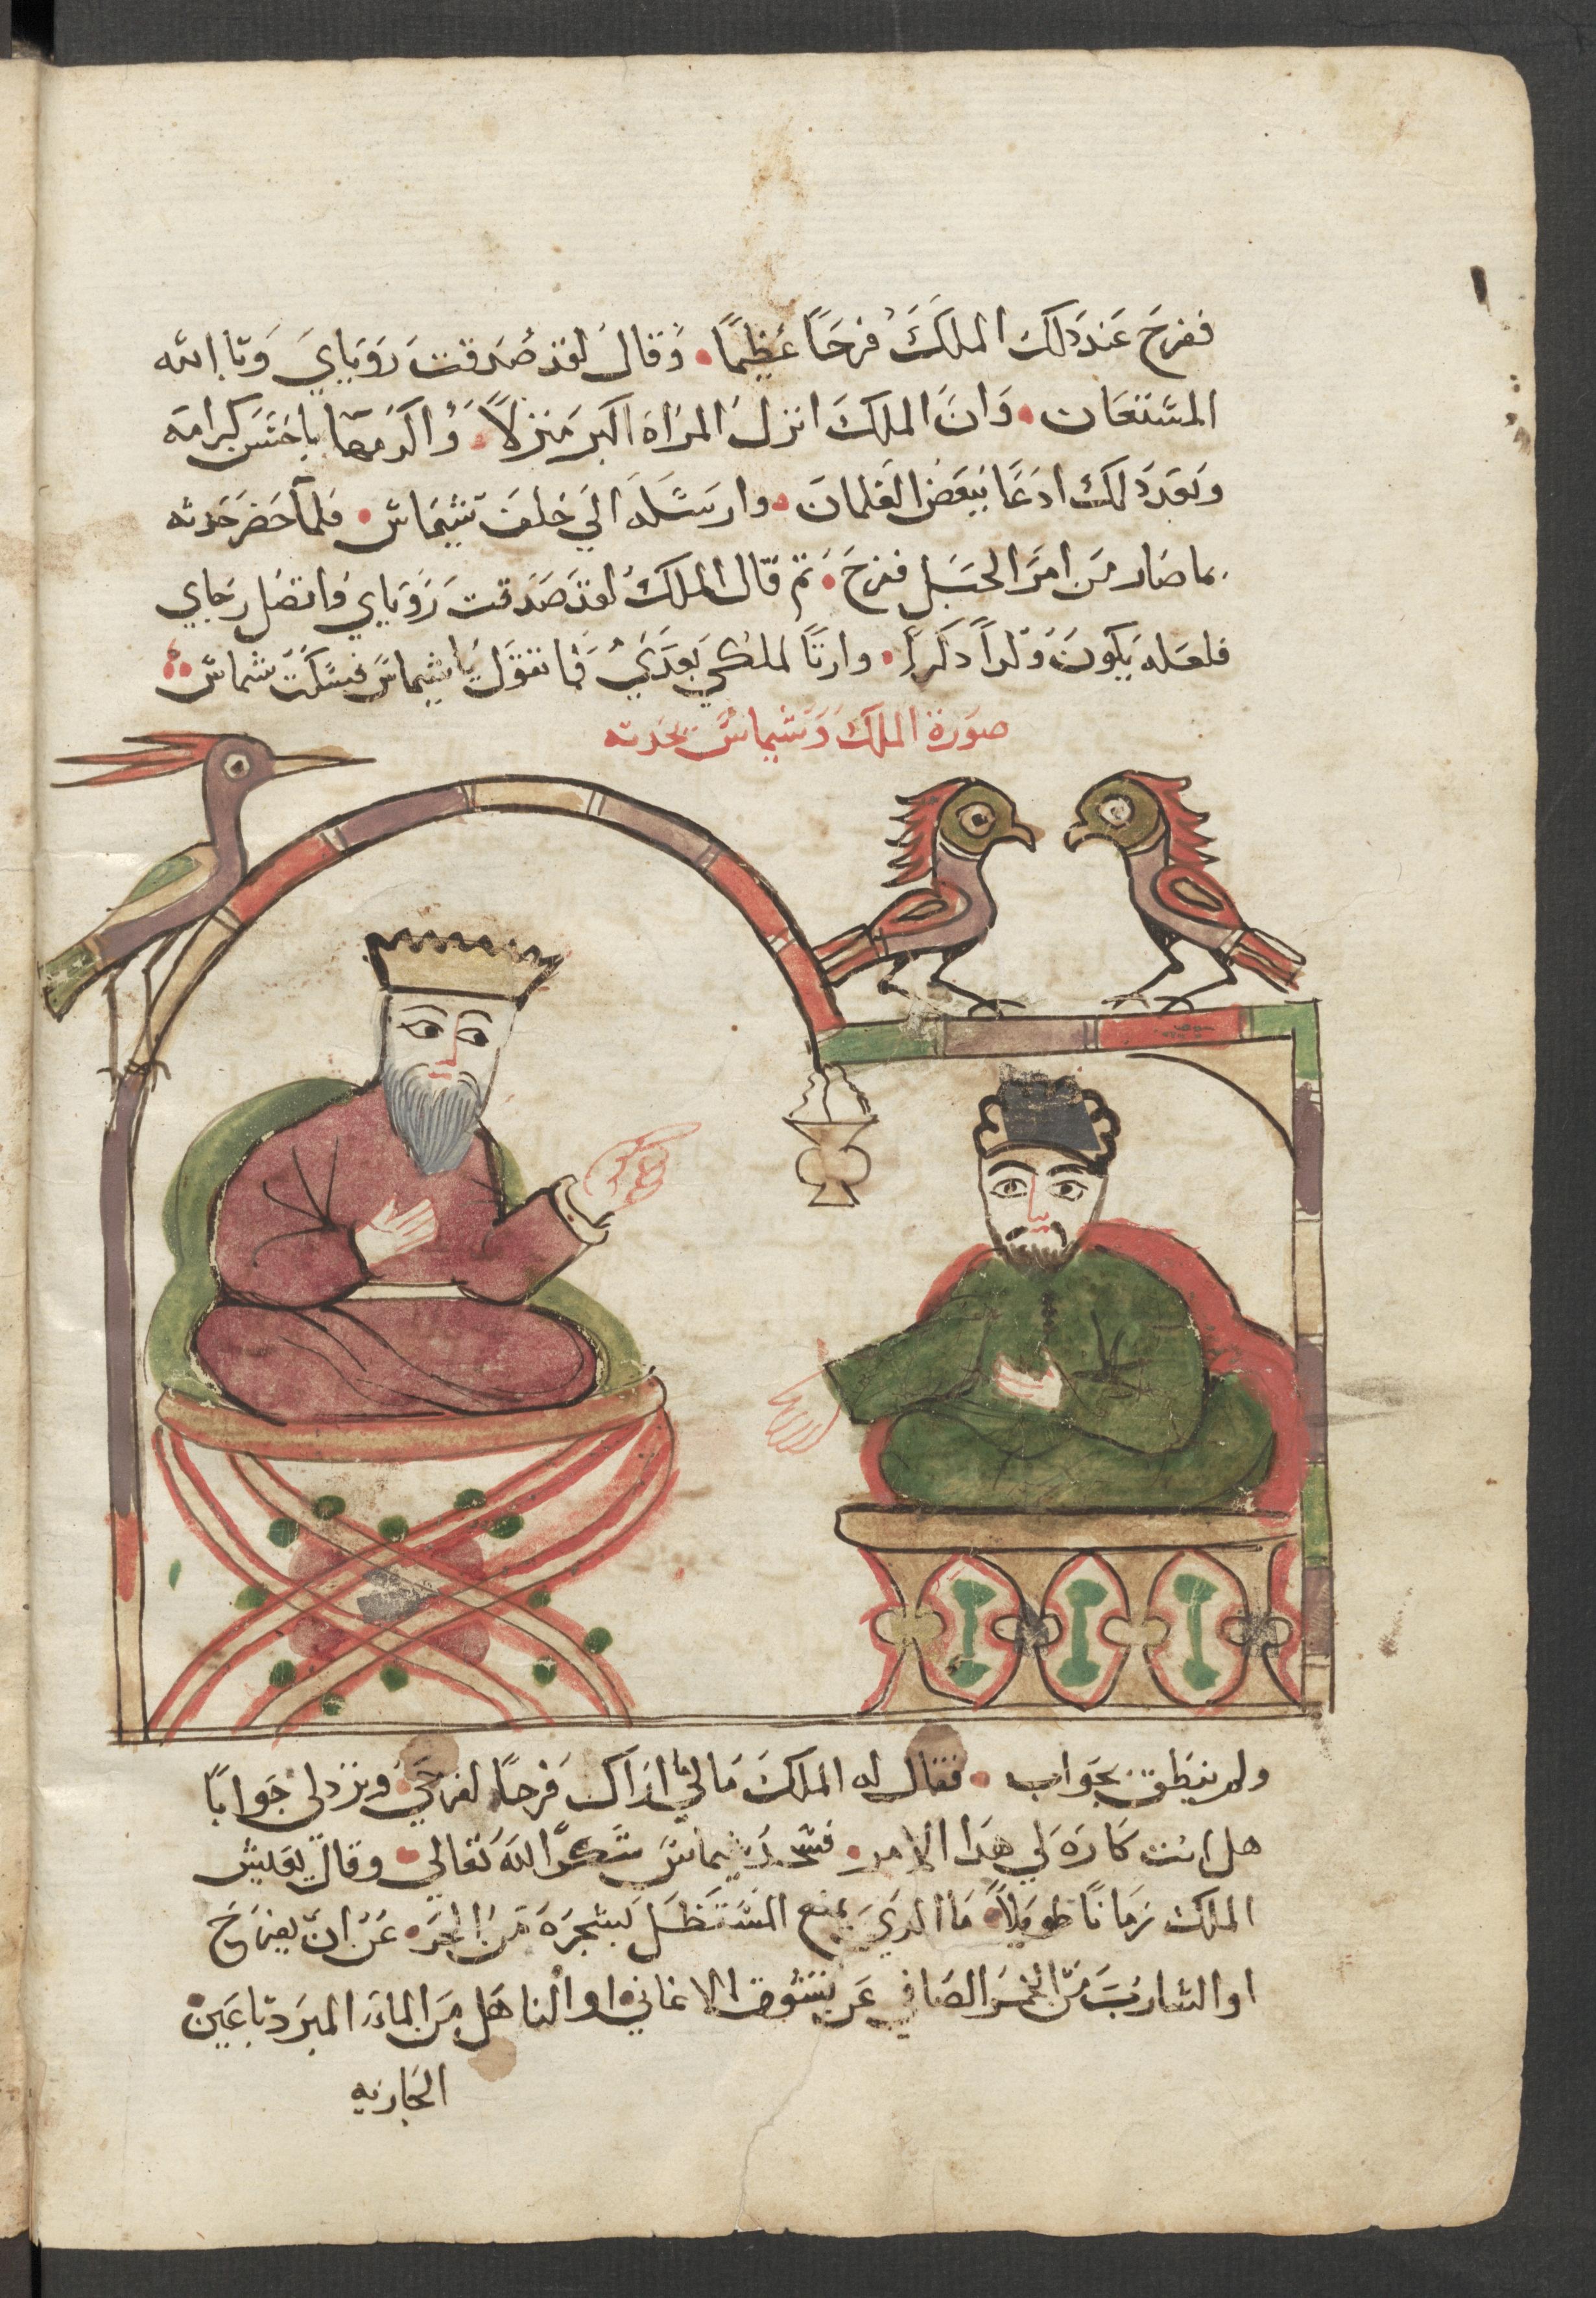 ففرح عند دلك الملك فرحًا عظيمًا • وقال لقد صدقت روياي وبا الله
المستعان • وان الملك انزل المراة اكبر منزلاً • واكرمها باحسن كرامه
وبعد دلك ادعا ببعض الغلمان • وارسله الي خلف شيماس • فلما حضر حدثه
بما صار من امر الحبل ففرح • تم قال الملك لقد صدقت روياي واتصل رجاي
فلعله يكون ولداً دكراً • وارتًا لملكي بعدي فما تقول يا شيماس فسكت شماس
صورة الملك وشيماس بحدته
ولم ينطق بجواب • فقال له الملك مالي ما اراك فرحاً لفرحي • وترد لي جوابًا
هل انت كاره لي هدا الامر • فسجد شيماس شكرًا لله تعالي • وقال يعيش
الملك زمانًا طويلاً • ما الدي يمنع المستظل بشجره من الحر • عن ان يفرح
او الشارب من الخمر الصافي عن تشوق الاغاني او الناهل من الماء المبرد تباعين
الجاريه